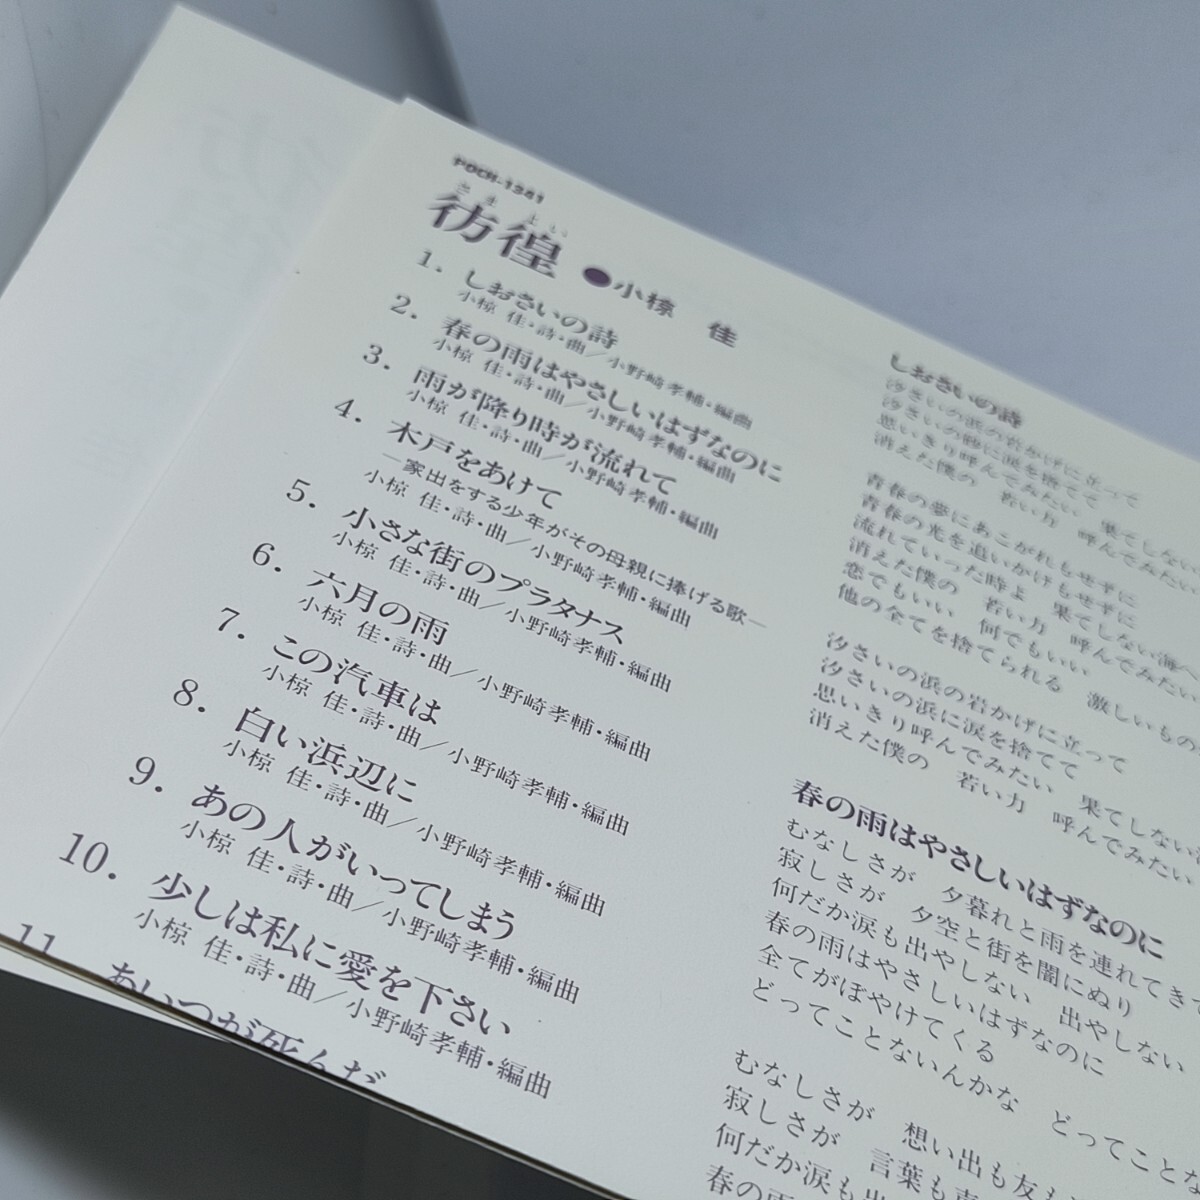 POCH-1341
さまよい
彷徨 ●小椋 佳
1. しおさいの詩
小椋 佳・詩・曲／小野崎孝輔・編曲
2. 春の雨はやさしいはずなのに
小椋 佳・詩・曲／小野崎孝輔・編曲
3. 雨が降り時が流れて
小椋 佳・詩・曲／小野崎孝輔・編曲
4. 木戸をあけて
―家出をする少年がその母親に捧げる歌―
小椋 佳・詩・曲／小野崎孝輔・編曲
5. 小さな街のプラタナス
小椋 佳・詩・曲／小野崎孝輔・編曲
6. 六月の雨
小椋 佳・詩・曲／小野崎孝輔・編曲
7. この汽車は
小椋 佳・詩・曲／小野崎孝輔・編曲
8. 白い浜辺に
小椋 佳・詩・曲／小野崎孝輔・編曲
9. あの人がいってしまう
小椋 佳・詩・曲／小野崎孝輔・編曲
10. 少しは私に愛を下さい
小椋 佳・詩・曲／小野崎孝輔・編曲
11. あいつが死んだ
しおさいの詩
汐さいの浜の岩かげに立って
汐さいの砂に涙を捨てて
思いきり呼んでみたい 果てしない
消えた僕の 若い力 呼んでみたい
青春の夢にあこがれもせずに
青春の光を追いかけもせずに
流れていった時よ 果てしない海へ
消えた僕の 若い力 呼んでみたい
恋でもいい 何でもいい
他の全てを捨てられる 激しいもの
汐さいの浜の岩かげに立って
汐さいの浜に涙を捨てて
思いきり呼んでみたい 果てしない
消えた僕の 若い力 呼んでみたい
春の雨はやさしいはずなのに
むなしさが 夕暮れと雨を連れてき
寂しさが 夕空と街を闇にぬり
何だか涙も出やしない 出やしない
春の雨はやさしいはずなのに
全てがぼやけてくる
どってことないんかな どってことな
むなしさが 想い出も友も
寂しさが 言葉も
何だか涙も出
春の雨